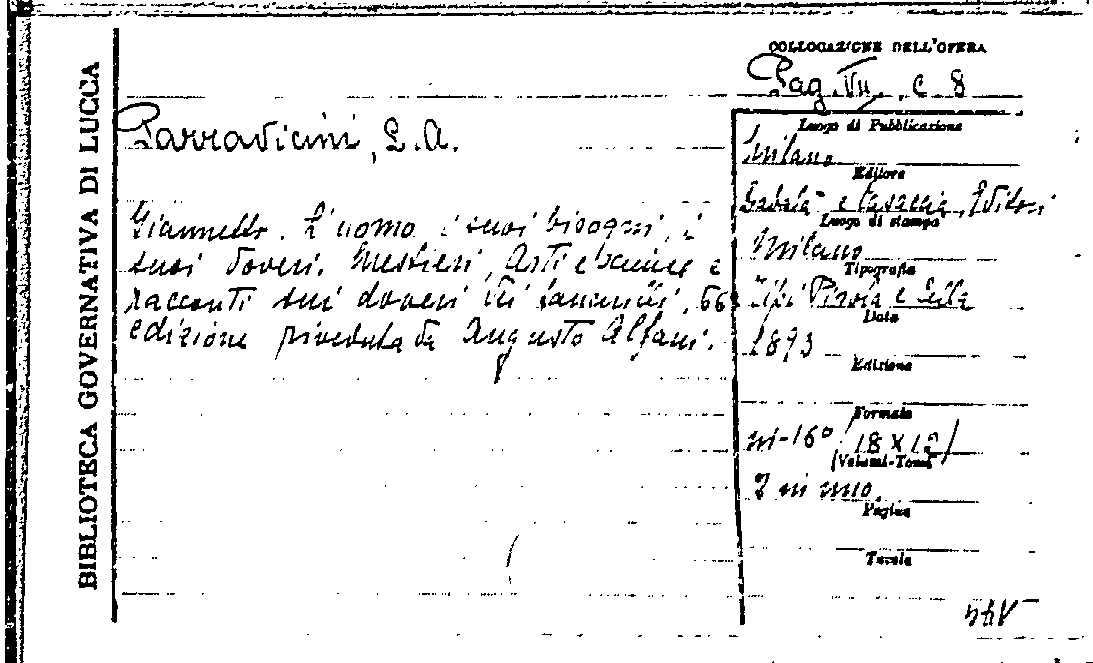 BIBLIOTECA GOVERNATIVA DI LUCCA
COLLOCAZIONE DELL'OPERA
Pag. VII. c. 8
Parravicini, L. A.
Giannetto. L'uomo i suoi bisogni, i
suoi doveri. Mestieri, Arti e scienze e
racconti sui doveri dei fanciulli, 66a
edizione riveduta da Augusto Alfani.
Luogo di Pubblicazione
Milano
Editore
e Casaccia, Editori
Luogo di stampa
Milano
Tipografia
Tipi Pirola e Cella
Data
1893
Edizione
Formato
in-16° (18 x 12)
(Volumi-Tomi)
2 in uno.
Pagine
Tavole